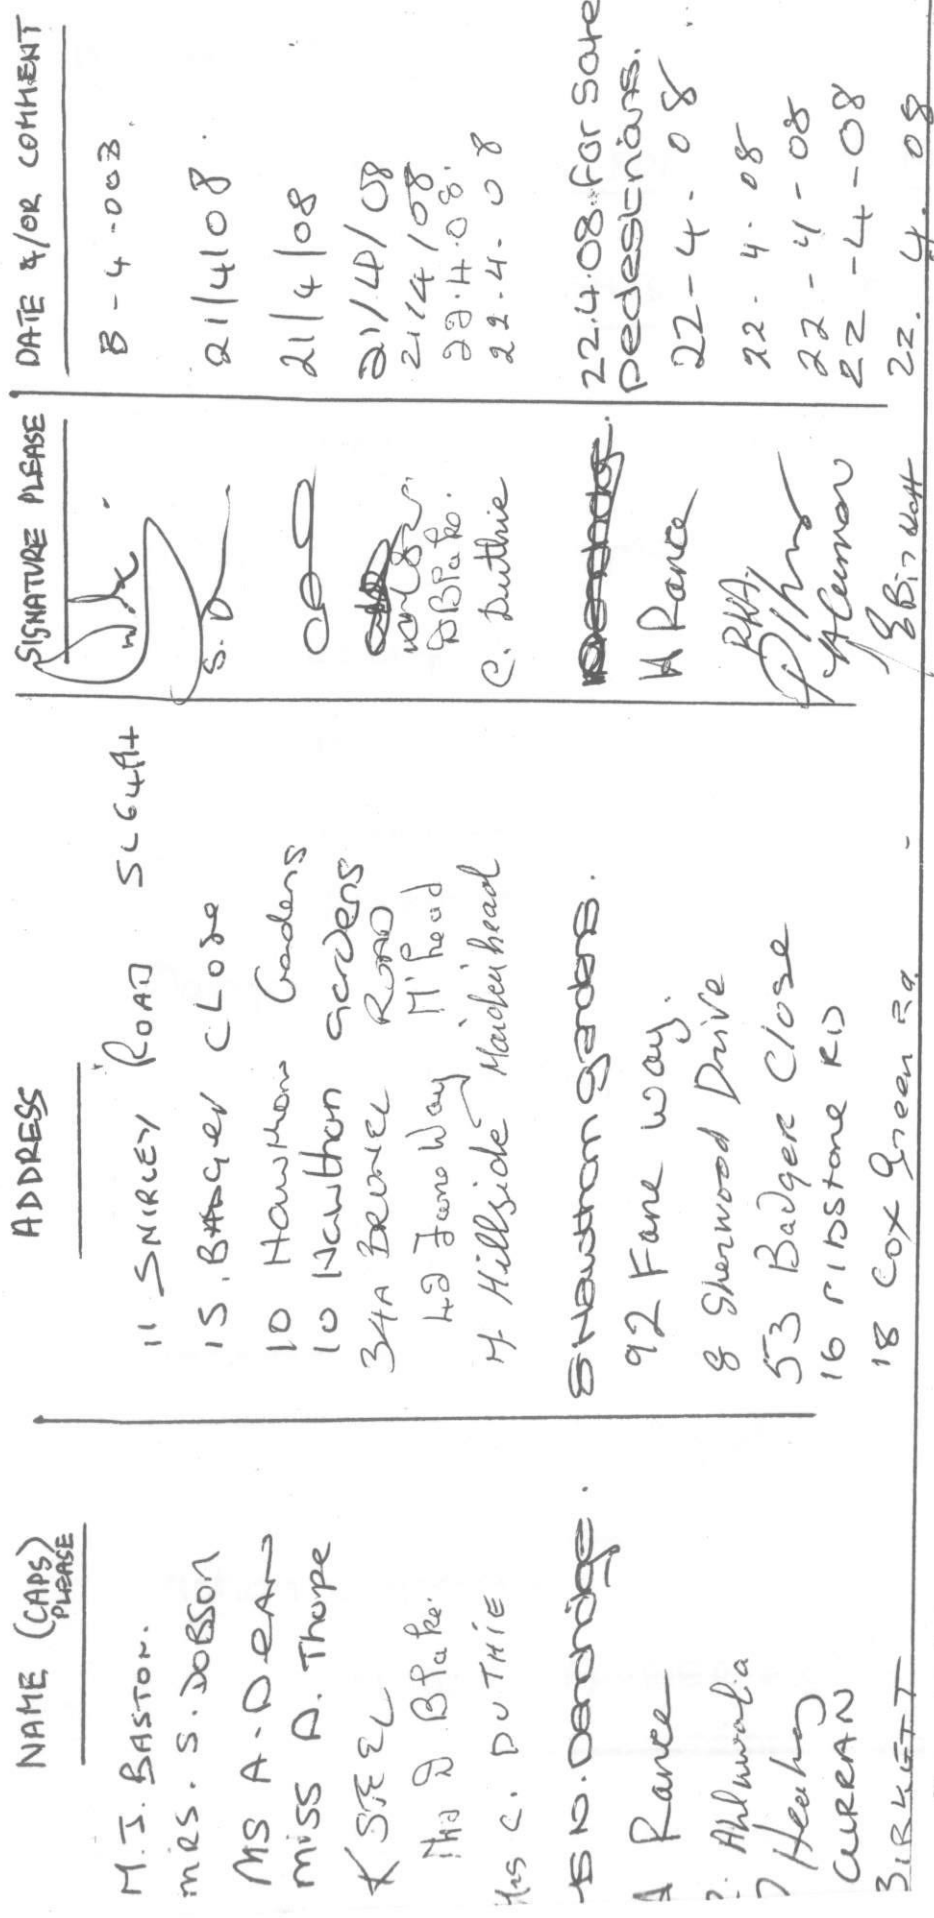 NAME (CAPS) PLEASE ADDRESS SIGNATURE PLEASE DATE &/OR COMMENT
M.J. BASTON. 11 SHIRLEY ROAD SL64A+ B-4-003
MRS. S. DOBSON 15. BADGER CLOSE S. D 21/4/08.
MS A. DEAN 10 Hawthorn Gardens 21/4/08
MISS D. Thorpe 10 Hawthorn gardens 21/4/08
K STEEL 34A BRUNEL ROAD 21/4/08
Mrs D Blake. 42 Fane Way M'head D Blake. 22.4.08.
Mrs C. DUTHIE 4 Hillside Maidenhead C. Duthie 22.4.08
D. Dandridge. 8 Hawthorn gardens. 22.4.08. For safe
pedestrians.
A Rance 92 Fane Way. A Rance 22-4-08
P. Ahluwalia 8 Sherwood Drive 22-4-08
Heahy 53 Badger Close 22-4-08
CURRAN 16 RIBSTONE RD 22-4-08
BIRKETT 18 Cox Green Rd. Birkett 22.4.08